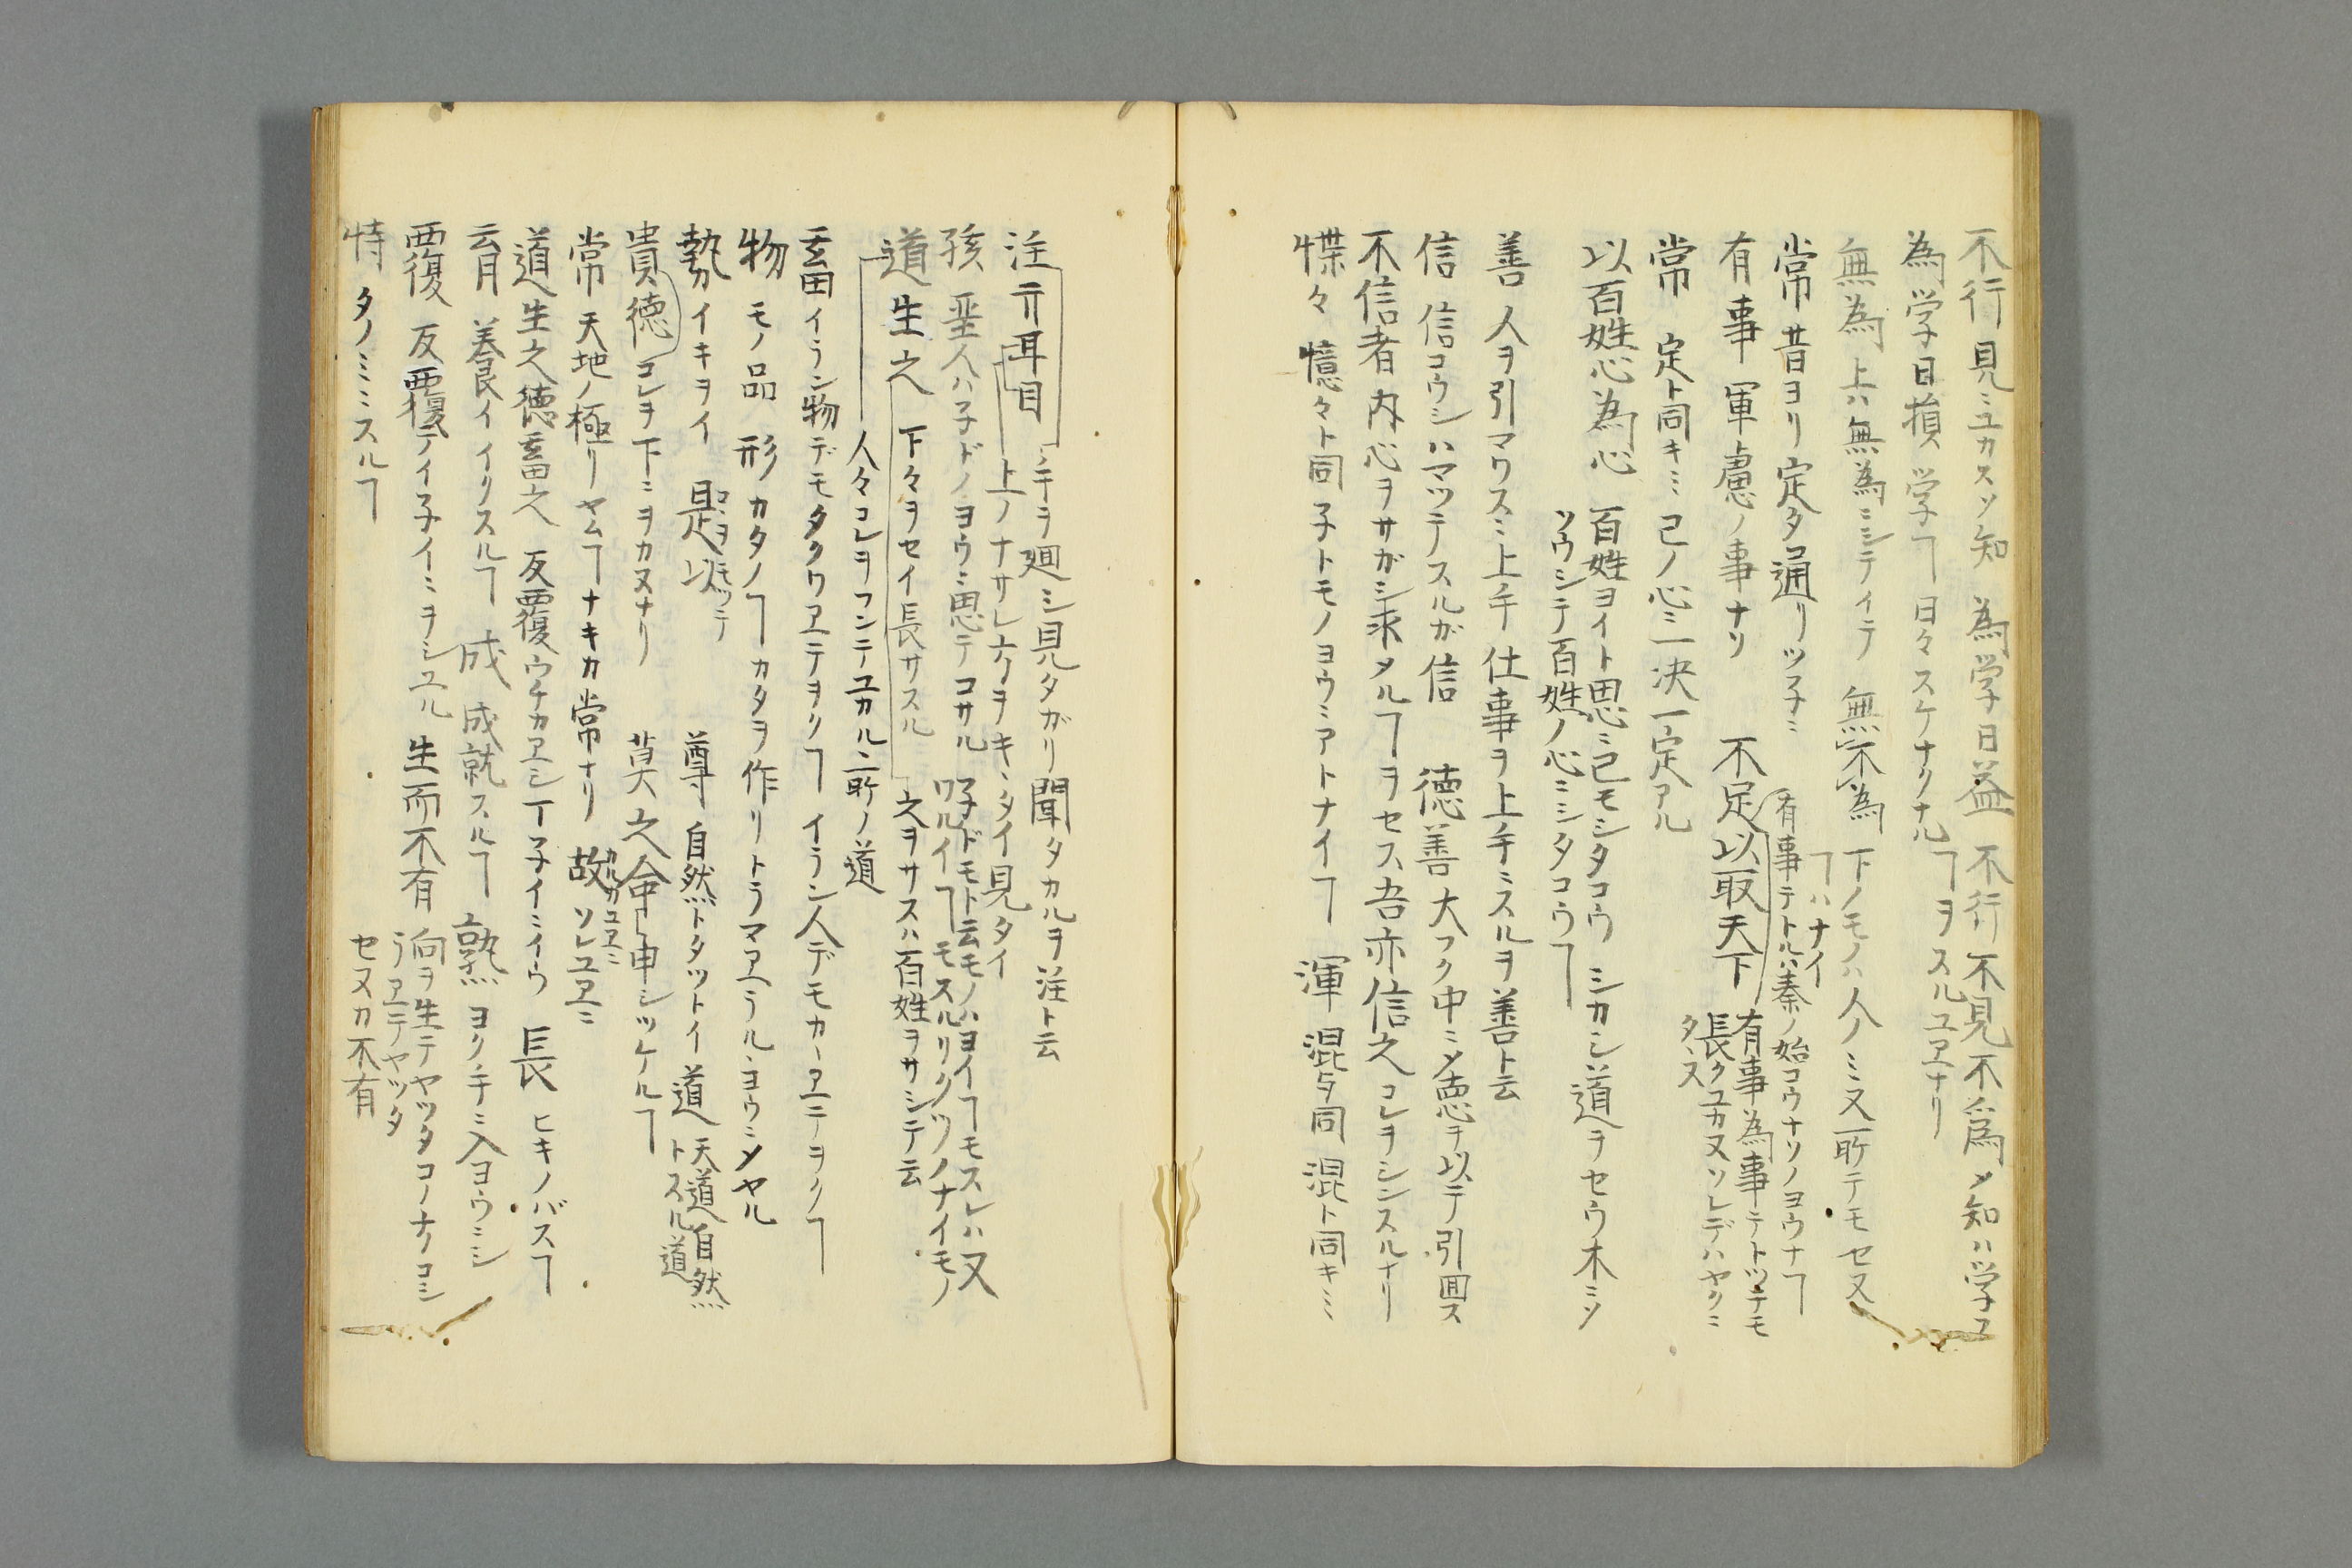 不行見ミユカスソ知 為学日益 不行不見不為メ知ハ学ユ
ヿヲスルユヱナリ
為学日損 学ヿ日々スケナクナル
無為 上ハ無為ミシテイテ 無不為 下ノモノハ人ノミヌ所テモセヌ
ヿハナイ
常 昔ヨリ定タ通リツ子ミ 有事テトルハ秦ノ始コウナソノヨウナヿ
有事 軍慮ノ事ナリ 不足以取天下 有事為事テトツテモ
長クユカヌソレデハヤクミ
タヽヌ
常 定ト同キミ 己ノ心ミ一决一定アル
以百姓心為心 百姓ヨイト思ミ己モシタコウ シカシ道ヲセウ木ミソ
ソウシテ百姓ノ心ミシタコウヿ
善 人ヲ引マワスミ上手仕事ヲ上手ミスルヲ善ト云
信 信コウシハマツテスルガ信 徳善 大フク中ミメ徳ヲ以テ引囲ス
不信者 内心ヲサガシ求タルヿヲセス吾亦信之 コレヲシンスルナリ
惵々 憶々ト同 子トモノヨウミアトナイヿ 渾 混与同 混ト同キミ
注亓耳目 ミ手ヲ廻シ見タガリ聞タカルヲ注ト云
上ノナサレ方ヲキヽタイ見タイ
孩 垩人ハ子ドノヨウミ思テコサル 子ドモト云モノハヨイヿモスレハ又
ワルイヿモスルリクツノナイモノ
道生之 下々ヲセイ長サスル 之ヲサスハ百姓ヲサシテ云
人々コレヲフンテユカル二所ノ道
畜 イラン物デモタクワヱテヲクヿ イラン人デモカヽヱテヲクヿ
物 モノ品 形 カタノヿ カタヲ作リトラマヱラルヽヨウミメヤル
勢 イキヲイ 是以 コヽヲモツテ 尊 自然トタツトイ 道 天道自然
トスル道
貴徳 コレヲ下ミヲカヌナリ 莫之命 申シツケルヿ
常 天地ノ極リヤムヿナキカ常ナリ 故 カルカユヱミ ソレユヱミ
道生之徳畜之 反覆ウチカヱシ丁子イミイウ 長 ヒキノバスヿ
育 養イイリスルヿ 成 成就スルヿ 熟 ヨク手ミ入ヨウミシ
覆 反覆テイ子イミヲシユル 生而不有 向ヲ生テヤツタコノナクコシ
ラヱテヤツタ
セヌカ不有
恃 タノミミスルヿ